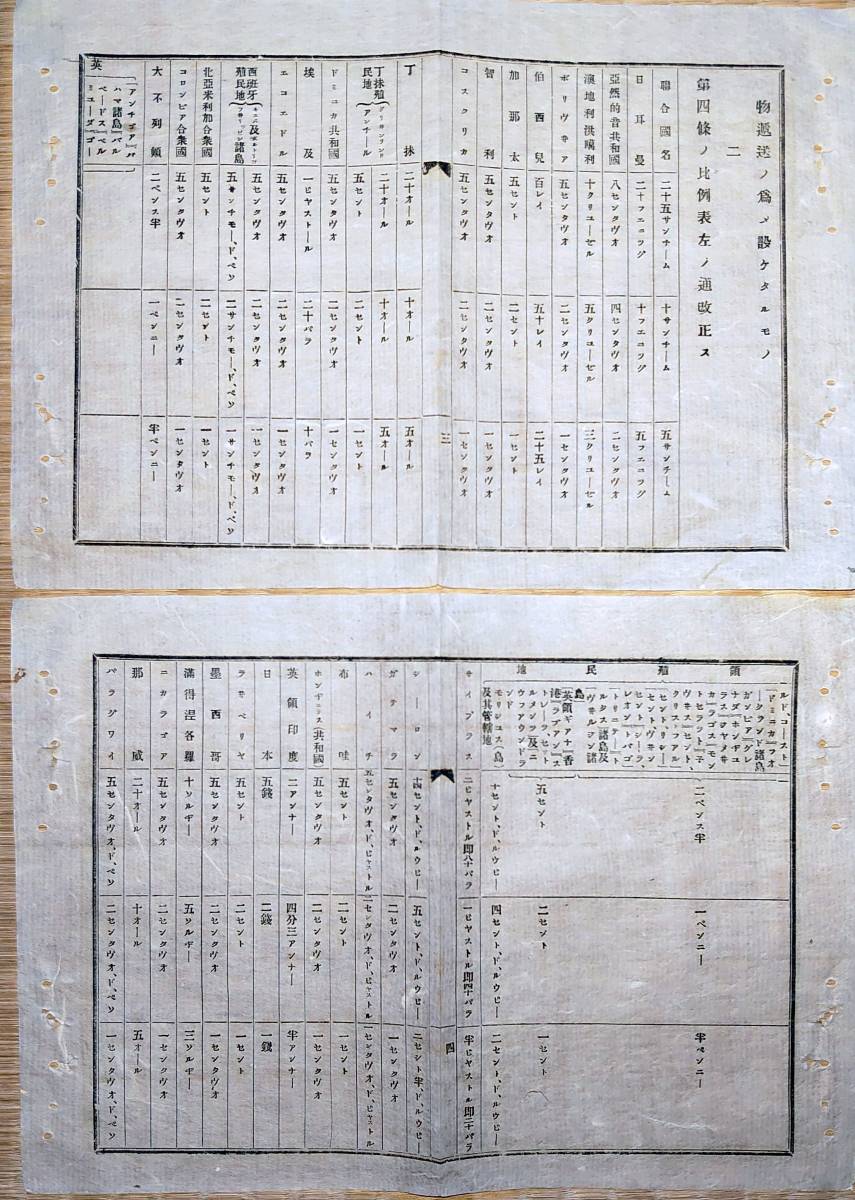 物遞送ノ爲メ設ケタルモノ
二
第四條ノ比例表左ノ通改正ス
聯合國名 二十五サンチーム 十サンチーム 五サンチーム
日耳曼 二十フエニツグ 十フエニツグ 五フエニツグ
亞然的音共和國 八センタヴオ 四センタヴオ 二センタヴオ
澳地利洪噶利 十クリユーゼル 五クリユーゼル 三クリユーゼル
ボリヴヰア 五センタヴオ 二センタヴオ 一センタヴオ
伯西兒 百レイ 五十レイ 二十五レイ
加那太 五セント 二セント 一セント
智利 五センタヴオ 二センタヴオ 一センタヴオ
コスタリカ 五センタヴオ 二センタヴオ 一センタヴオ
三
丁抹 二十オール 十オール 五オール
丁抹殖民地 アンチール 五セント 二セント 一セント
ドミニカ共和國 五センタヴオ 二センタヴオ 一センタヴオ
埃及 一ピヤストール 二十パラ 十パラ
エコエドル 五センタヴオ 二センタヴオ 一センタヴオ
西班牙殖民地 五センタヴオ 二センタヴオ 一センタヴオ
五サンチモー、ド、ペソ 二サンチモー、ド、ペソ 一サンチモー、ド、ペソ
北亞米利加合衆國 五セント 二セント 一セント
コロンビア合衆國 五センタヴオ 二センタヴオ 一センタヴオ
大不列顛 二ペンス半 一ペンニー 半ペンニー
英
「アンチゴア」「バ
ハマ諸島」「バル
ベードス」「ベル
ミユーダ」「ゴー
ルド、コースト」
「ドミニカ」「フオ
ークランド諸島」
「ガンビア」「グレ
ナダ」「ホンヂユ
ラス」「ジヤマイカ」
「ラゴス」「モン
トセラツト」「子
ヴヰス」「セント、
クリストフアル」
「セント、リユシー」
「セント、ヴヰンセント」「シーラ、
レオン」「トバゴ」
「トリニダート」
「タルクス諸島及
ヴヰルジン諸島」
二ペンス半 一ペンニー 半ペンニー
領殖民地
「英領ギアナ」「香
港」「ラブアン」「ス
トレーツ、セット
ルメンツ」及ニ
ウフアウンドランド
五セント 二セント 一セント
モリシユス(島)及其管轄地 十セント、ド、ルウヒー 四セント、ド、ルウヒー 二セント、ド、ルウヒー
サイプラス 二ピヤストル即八十パラ 一ピヤストル即四十パラ 半ピヤストル即二十パラ
四
シーロン 十四セント、ド、ルウヒー 五セント、ド、ルウヒー 二セント半、ド、ルウヒー
ガテマラ 五センタヴオ 二センタヴオ 一センタヴオ
ハイチ 五センタヴオ、ド、ピヤストル 二センタヴオ、ド、ピヤストル 一センタヴオ、ド、ピヤストル
ホンヂユラス(共和國) 五センタヴオ 二センタヴオ 一センタヴオ
布哇 五セント 二セント 一セント
英領印度 二アンナー 四分三アンナー 半アンナー
日本 五錢 二錢 一錢
ラヰベリヤ 五セント 二セント 一セント
墨西哥 五センタヴオ 二センタヴオ 一センタヴオ
滿得涅各羅 十ソルヂー 五ソルヂー 三ソルヂー
ニカラゴア 五センタヴオ 二センタヴオ 一センタヴオ
那威 二十オール 十オール 五オール
パラグワイ 五センタヴオ、ド、ペソ 二センタヴオ、ド、ペソ 一センタヴオ、ド、ペソ